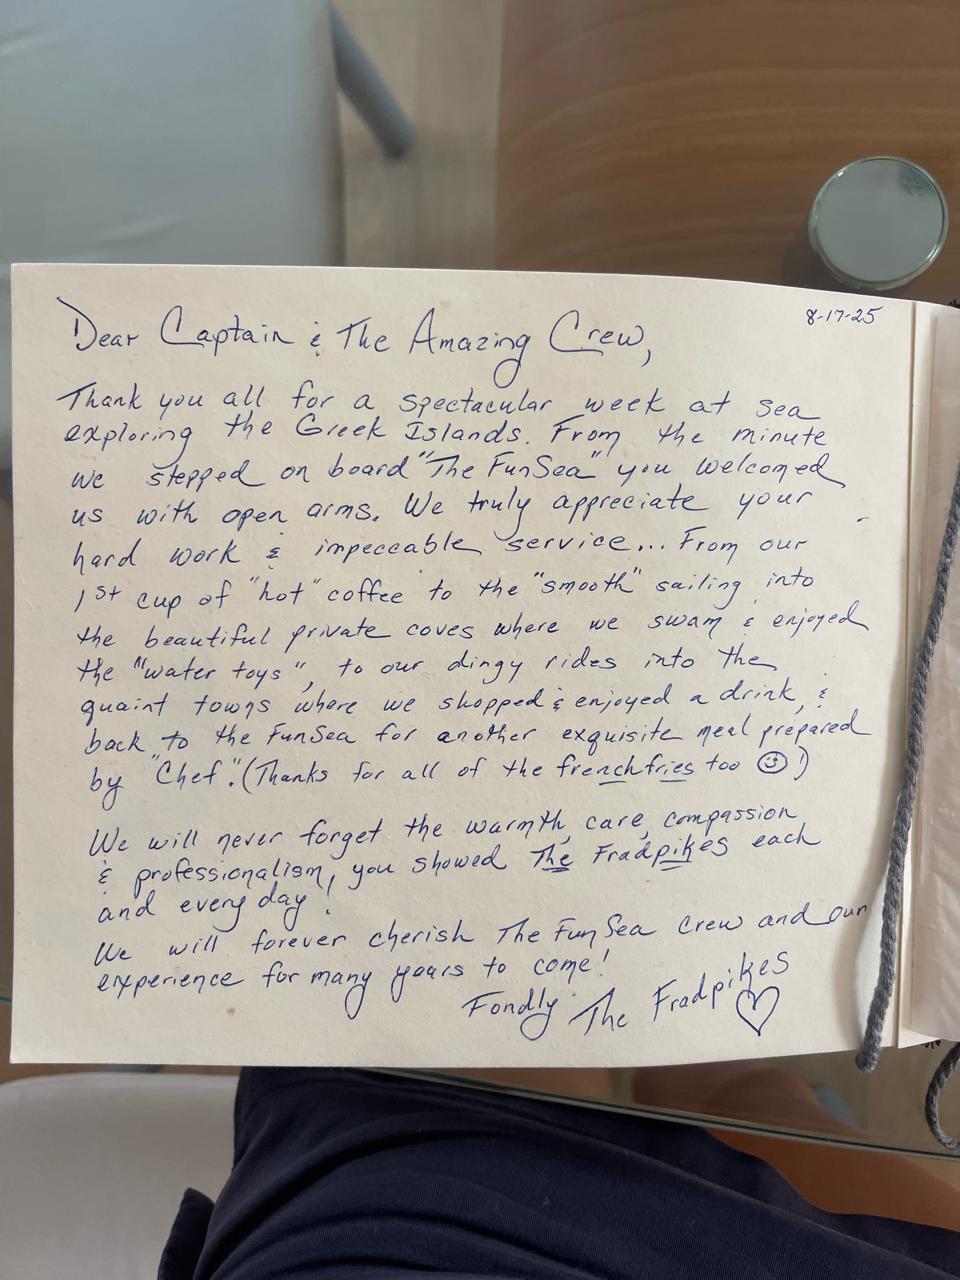 8-17-25
Dear Captain & The Amazing Crew,
Thank you all for a spectacular week at sea
exploring the Greek Islands. From the minute
we stepped on board "The FunSea" you welcomed
us with open arms. We truly appreciate your
hard work & impeccable service... From our
1st cup of "hot" coffee to the "smooth" sailing into
the beautiful private coves where we swam & enjoyed
the "water toys", to our dingy rides into the
quaint towns where we shopped & enjoyed a drink, &
back to the FunSea for another exquisite meal prepared
by "Chef". (Thanks for all of the french fries too ☺!)
We will never forget the warmth, care, compassion
& professionalism, you showed The Fradpikes each
and every day!
We will forever cherish The FunSea Crew and our
experience for many years to come!
Fondly The Fradpikes
♡